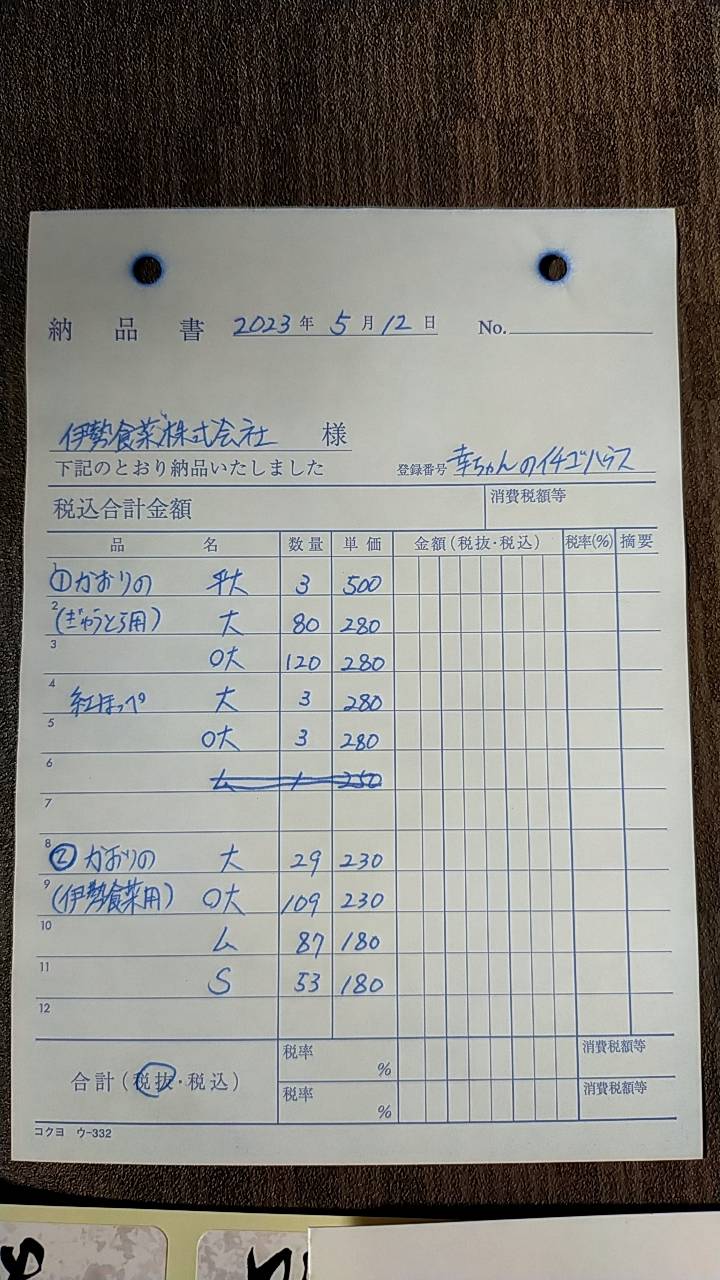 納品書 2023年 5月 12日 No.
伊勢食菜株式会社 様
下記のとおり納品いたしました 登録番号 幸ちゃんのイチゴハウス
税込合計金額 消費税額等
品名 数量 単価 金額(税抜・税込) 税率(%) 摘要
1 ①かおりの 平大 3 500
2 (ぎゅうとら用) 大 80 280
3 〇大 120 280
4 紅ほっぺ 大 3 280
5 〇大 3 280
6 ム 1 250
7
8 ②かおりの 大 29 230
9 (伊勢食菜用) 〇大 109 230
10 ム 87 180
11 S 53 180
12
合計(税抜・税込) 税率 % 消費税額等
税率 % 消費税額等
コクヨ ウ-332